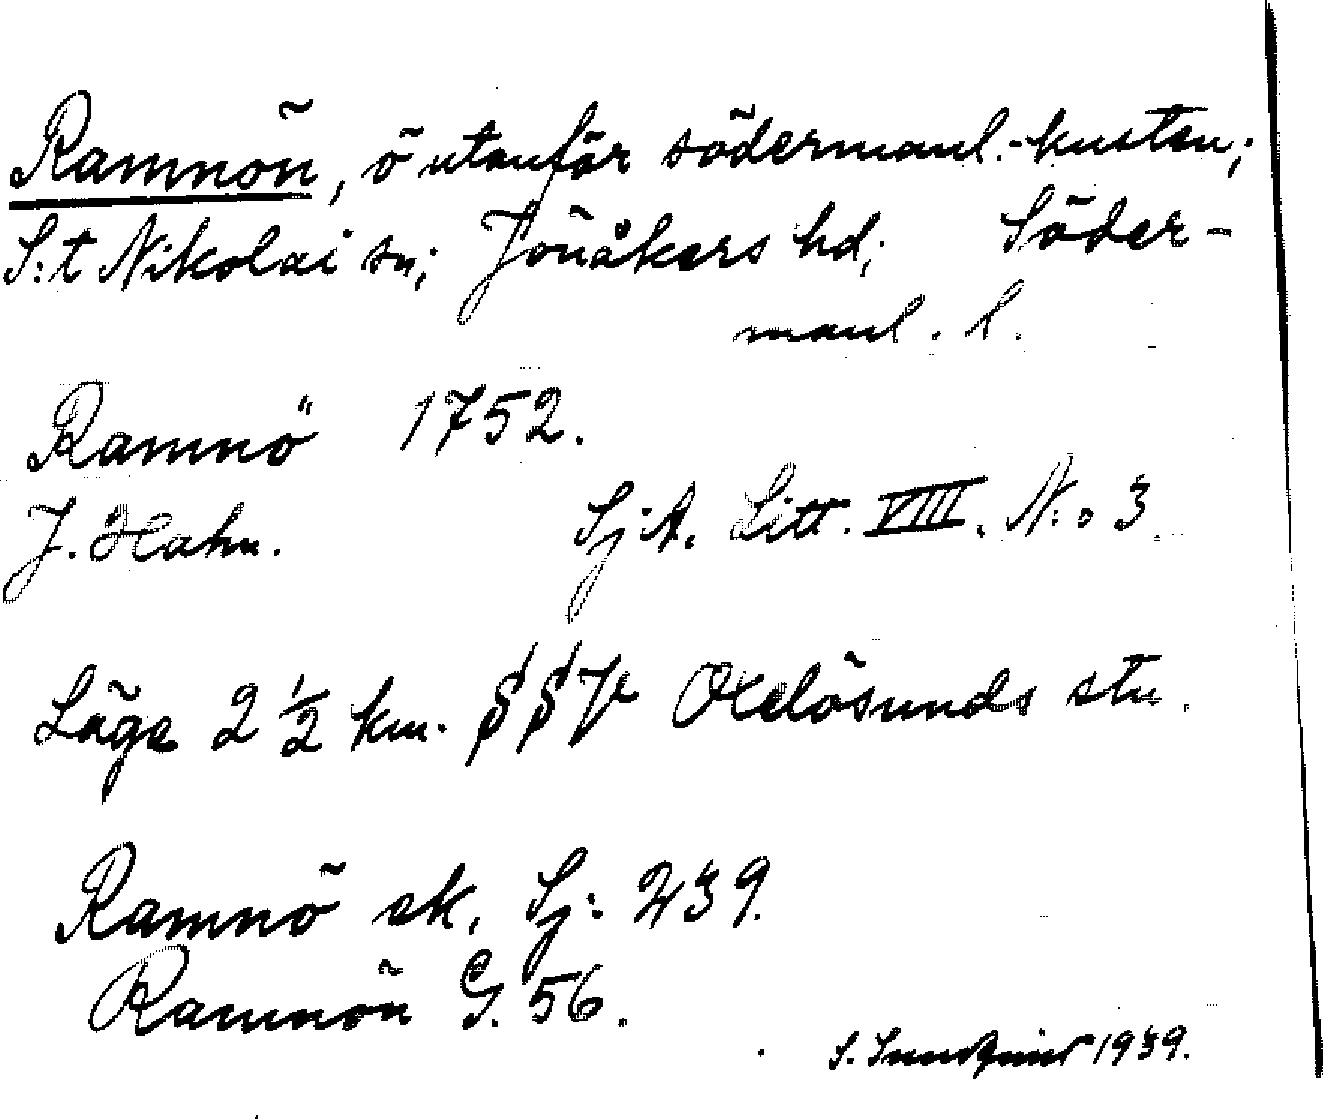 Ramnön, ö utanför södermanl.-kusten;
S:t Nikolai sn; Jönåkers hd; Söder-
manl. l.
Ramnö 1752.
J. Hahn. Sj:A. Litt. VIII. N:o 3.
Läge 2 1/2 km. Oxelösunds stn.
Ramnö sk. Sj: 239.
Ramnön G. 56.
S. 1939.